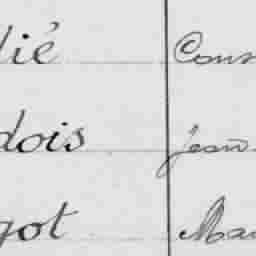 lié Cons
dois Jean
got Mar